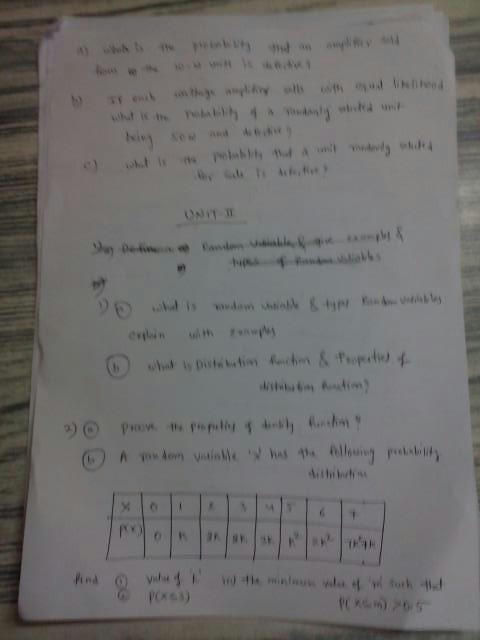 a) what is the probability that an amplifier sold
from the 10-W units is defective?
b) If each wattage amplifier sells with equal likelihood
what is the probability of a randomly selected unit
being 50W and defective?
c) what is the probability that a unit randomly selected
for sale is defective?
UNIT-II
Random Variable & give examples &
types of Random variables
1) a what is random variable & types Random variables
explain with examples
b what is Distribution function & Properties of
distribution function?
2) a prove the properties of density function?
b A random variable 'x' has the following probability
distribution
X 0 1 2 3 4 5 6 7
P(X) 0 k 2k 2k 3k k² 2k² 7k²+k
find i value of 'k' iii) the minimum value of 'm' such that
ii P(X≤3) P(X≤m) >0.5